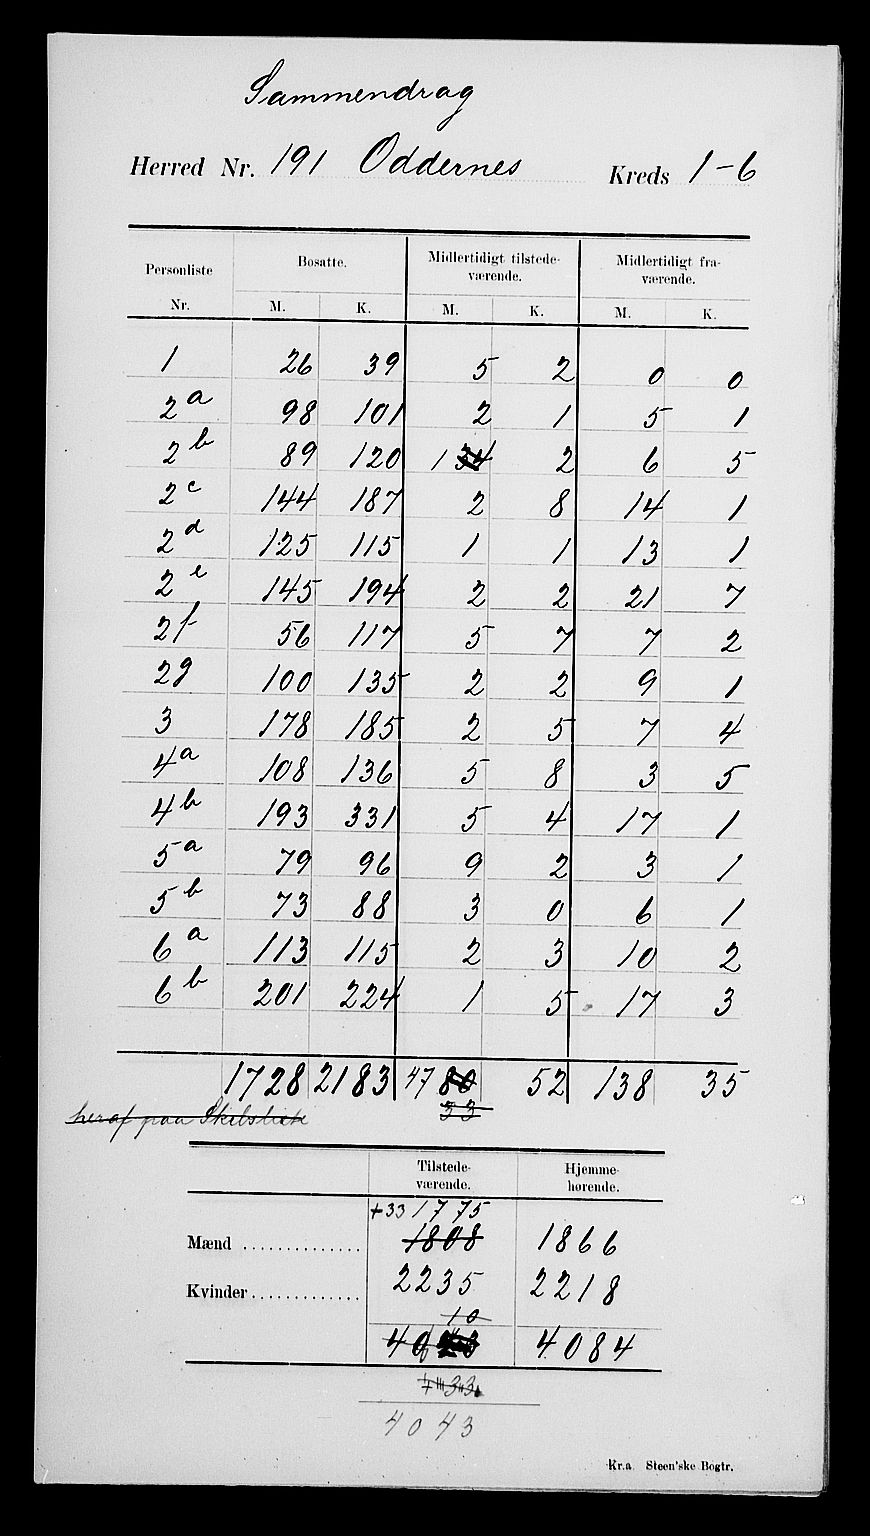 Sammendrag
Herred Nr. 191 Oddernes Kreds 1-6
Personliste Nr. Bosatte. Midlertidigt tilstedeværende. Midlertidigt fraværende.
M. K. M. K. M. K.
1 26 39 5 2 0 0
2a 98 101 2 1 5 1
2b 89 120 1 34 2 6 5
2c 144 187 2 8 14 1
2d 125 115 1 1 13 1
2e 145 194 2 2 21 7
2f 56 117 5 7 7 2
2g 100 135 2 2 9 1
3 178 185 2 5 7 4
4a 108 136 5 8 3 5
4b 193 331 5 4 17 1
5a 79 96 9 2 3 1
5b 73 88 3 0 6 1
6a 113 115 2 3 10 2
6b 201 224 1 5 17 3
1728 2183 47 80 52 138 35
heraf paa Skibsliste 33
Tilstede-værende. Hjemme-hørende.
+33 1775
Mænd 1808 1866
Kvinder 2235 2218
10
4084
33
4043
Kr.a Steen'ske Bogtr.